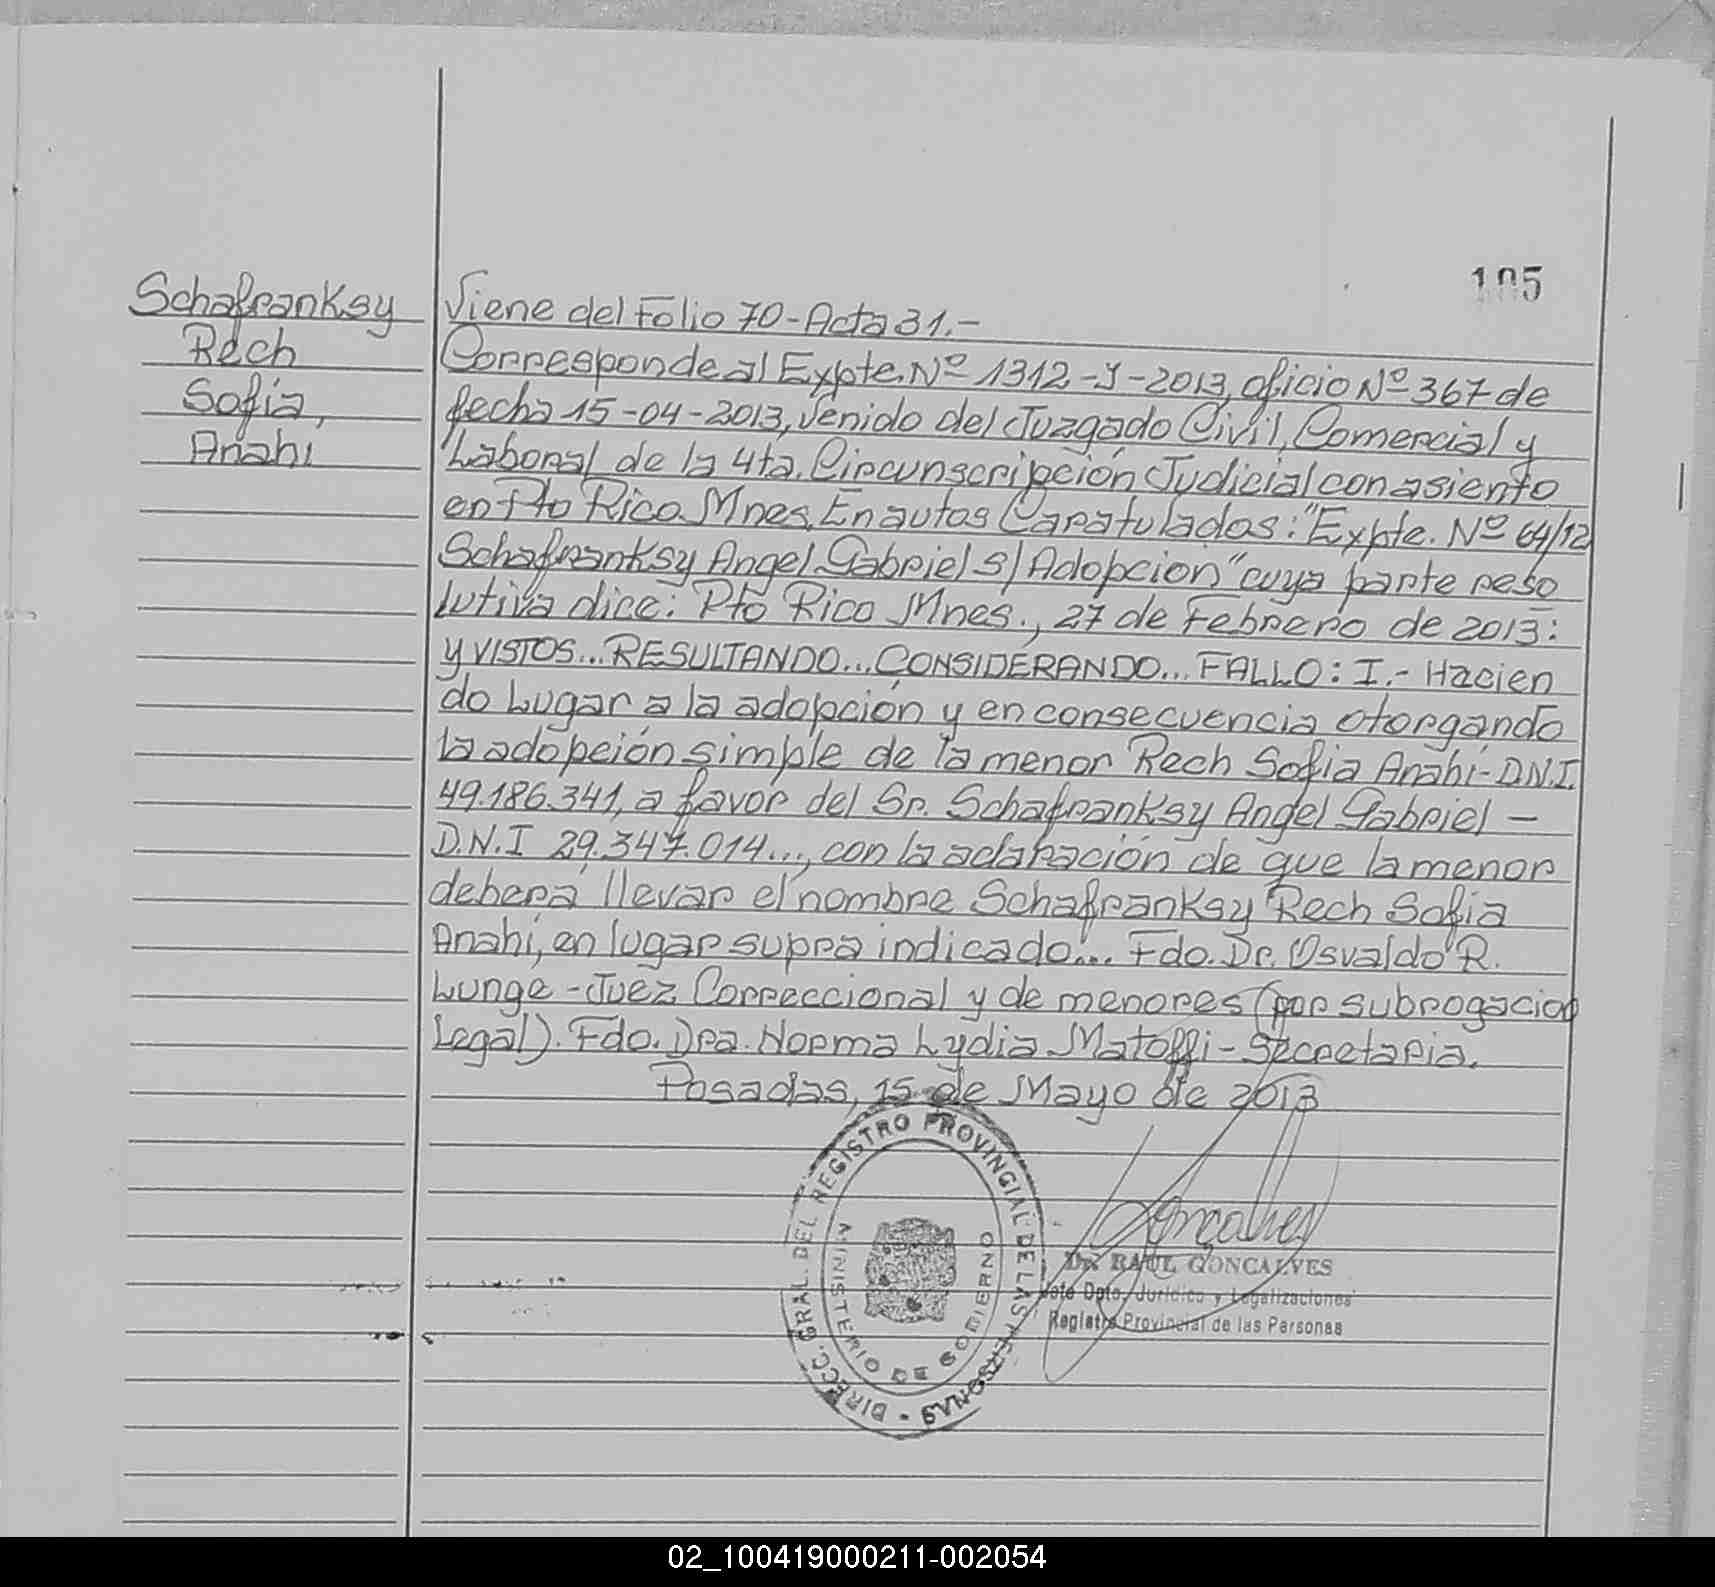 105
Schafranksy
Rech
Sofia,
Anahi
Viene del Folio 70 - Acta 31.-
Corresponde al Expte. Nº 1312-J-2013, oficio Nº 367 de
fecha 15-04-2013, venido del Juzgado Civil, Comercial y
Laboral de la 4ta. Circunscripción Judicial con asiento
en Pto Rico Mnes, En autos Caratulados: "Expte. Nº 64/12
Schafranksy Angel Gabriel S/ Adopcion" cuya parte reso
lutiva dice: Pto Rico Mnes., 27 de Febrero de 2013:
y VISTOS... RESULTANDO... CONSIDERANDO... FALLO: I.- Hacien
do Lugar a la adopción y en consecuencia otorgando
la adopción simple de la menor Rech Sofia Anahí - D.N.I.
49.186.341, a favor del Sr. Schafranksy Angel Gabriel -
D.N.I 29.347.014..., con la aclaración de que la menor
deberá llevar el nombre Schafranksy Rech Sofia
Anahí, en lugar supra indicado... Fdo. Dr. Osvaldo R.
Lunge - Juez Correccional y de menores (por subrogacion
Legal). Fdo. Dra. Norma Lydia Matoffi - Secretaria.
Posadas, 15 de Mayo de 2013
DIRECC. GRAL. DEL REGISTRO PROVINCIAL DE LAS PERSONAS
MINISTERIO DE GOBIERNO
Goncalves
Dr. RAUL GONCALVES
Jefe Dpto. Jurídico y Legalizaciones
Registro Provincial de las Personas
02_100419000211-002054